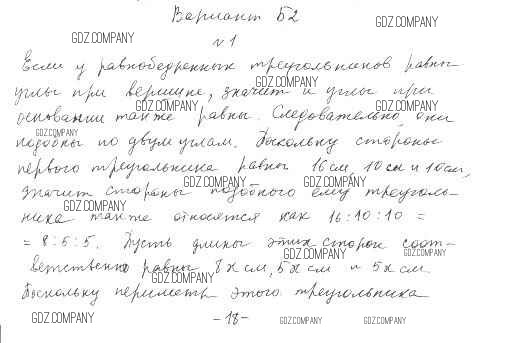 Вариант Б2
GDZ.COMPANY
GDZ.COMPANY
№1
Если у равнобедренных треугольников равны
GDZ.COMPANY
углы при вершине, значит и углы при
GDZ.COMPANY
GDZ.COMPANY
основании также равны. Следовательно, они
GDZ.COMPANY
подобны по двум углам. Поскольку стороны
первого треугольника равны 16 см, 10 см и 10 см,
GDZ.COMPANY
GDZ.COMPANY
значит стороны подобного ему треуголь-
GDZ.COMPANY
ника также относятся как 16:10:10 =
= 8:5:5. Пусть длины этих сторон соот-
GDZ.COMPANY
GDZ.COMPANY
ветственно равны 8x см, 5x см и 5x см.
GDZ.COMPANY
Поскольку периметр этого треугольника
GDZ.COMPANY
-18-
GDZ.COMPANY
GDZ.COMPANY